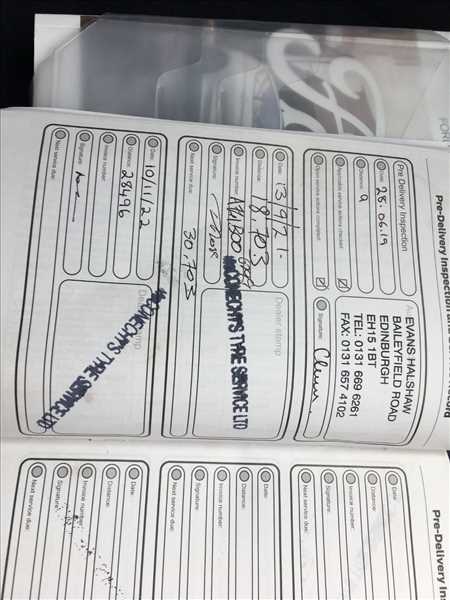 Pre-Delivery Inspection and
Record
Pre Delivery Inspection
Date: 28.06.19
Distance: 9
Applicable service actions checked:
Open service actions completed:
EVANS HALSHAW
BAILEYFIELD ROAD
EDINBURGH
EH15 1BT
TEL: 0131 669 6261
FAX: 0131 657 4102
Signature:
Date: 13/9/21.
Distance: 18703
Invoice number:
Signature:
Next service due: 30.703
Dealer stamp
McCONECHY'S TYRE SERVICE LTD
Date: 10/11/22
Distance: 28496
Invoice number:
Signature:
Next service due:
Dealer stamp
McCONECHY'S TYRE SERVICE LTD
Pre-Delivery Ins
Date:
Distance:
Invoice number:
Signature:
Next service due:
Date:
Distance:
Invoice number:
Signature:
Next service due:
Date:
Distance:
Invoice number:
Signature:
Next service due:
FOR